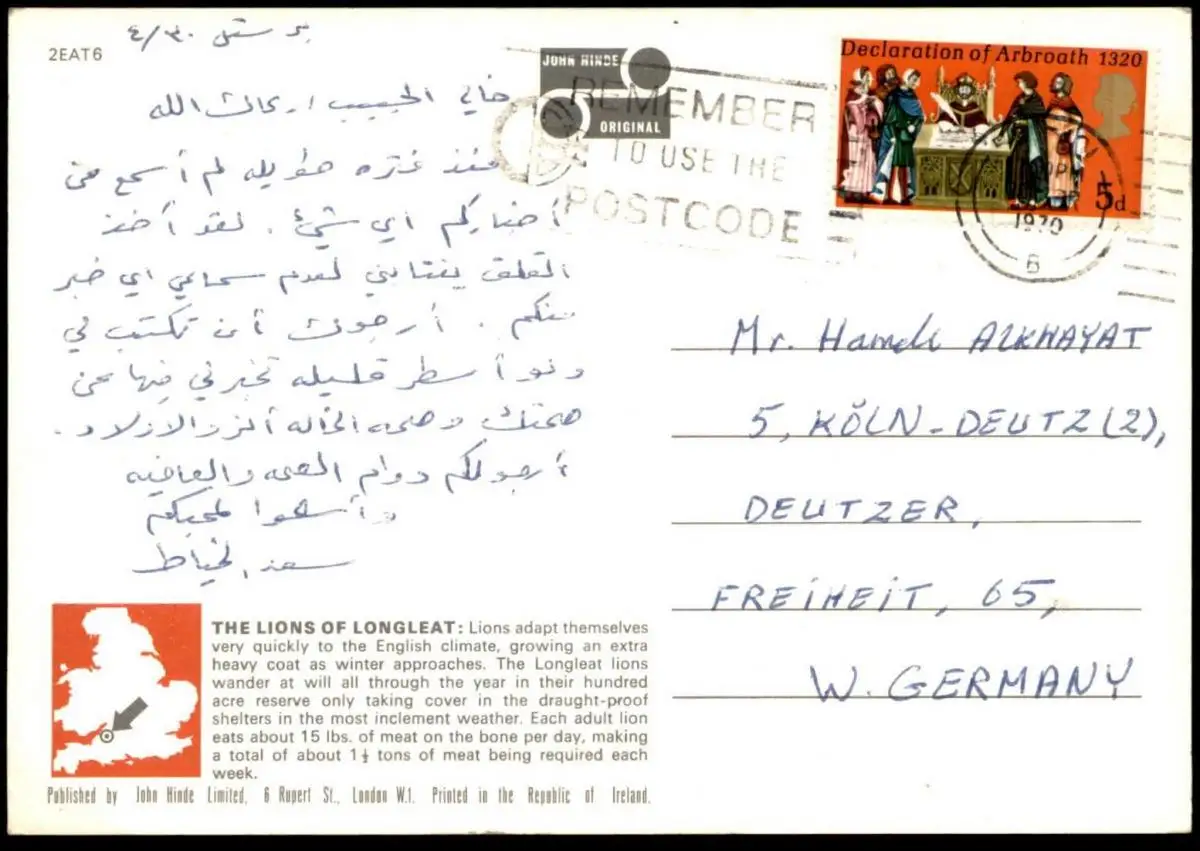 2EAT6
برستل ٤/٣٠
خالي الحبيب ارعاك الله
منذ فتره طويله لم أسمع من
أخباركم أي شئ . لقد أخذ
القلق ينتابني لعدم سماعي اي خبر
منكم . أرجوك أن تكتب لي
ولو أسطر قليله تخبرني فيها عن
صحتك وصحه الخاله والاولاد .
أرجو لكم دوام الصحه والعافيه
وأسلموا لمحبكم
سعد الخياط
JOHN HINDE
ORIGINAL
REMEMBER
TO USE THE
POSTCODE
Declaration of Arbroath 1320
5d
1970
B
Mr. Hamdi ALKHAYAT
5, KÖLN-DEUTZ(2),
DEUTZER,
FREIHEIT, 65,
W. GERMANY
THE LIONS OF LONGLEAT: Lions adapt themselves
very quickly to the English climate, growing an extra
heavy coat as winter approaches. The Longleat lions
wander at will all through the year in their hundred
acre reserve only taking cover in the draught-proof
shelters in the most inclement weather. Each adult lion
eats about 15 lbs. of meat on the bone per day, making
a total of about 1½ tons of meat being required each
week.
Published by John Hinde Limited, 6 Rupert St., London W.1. Printed in the Republic of Ireland.